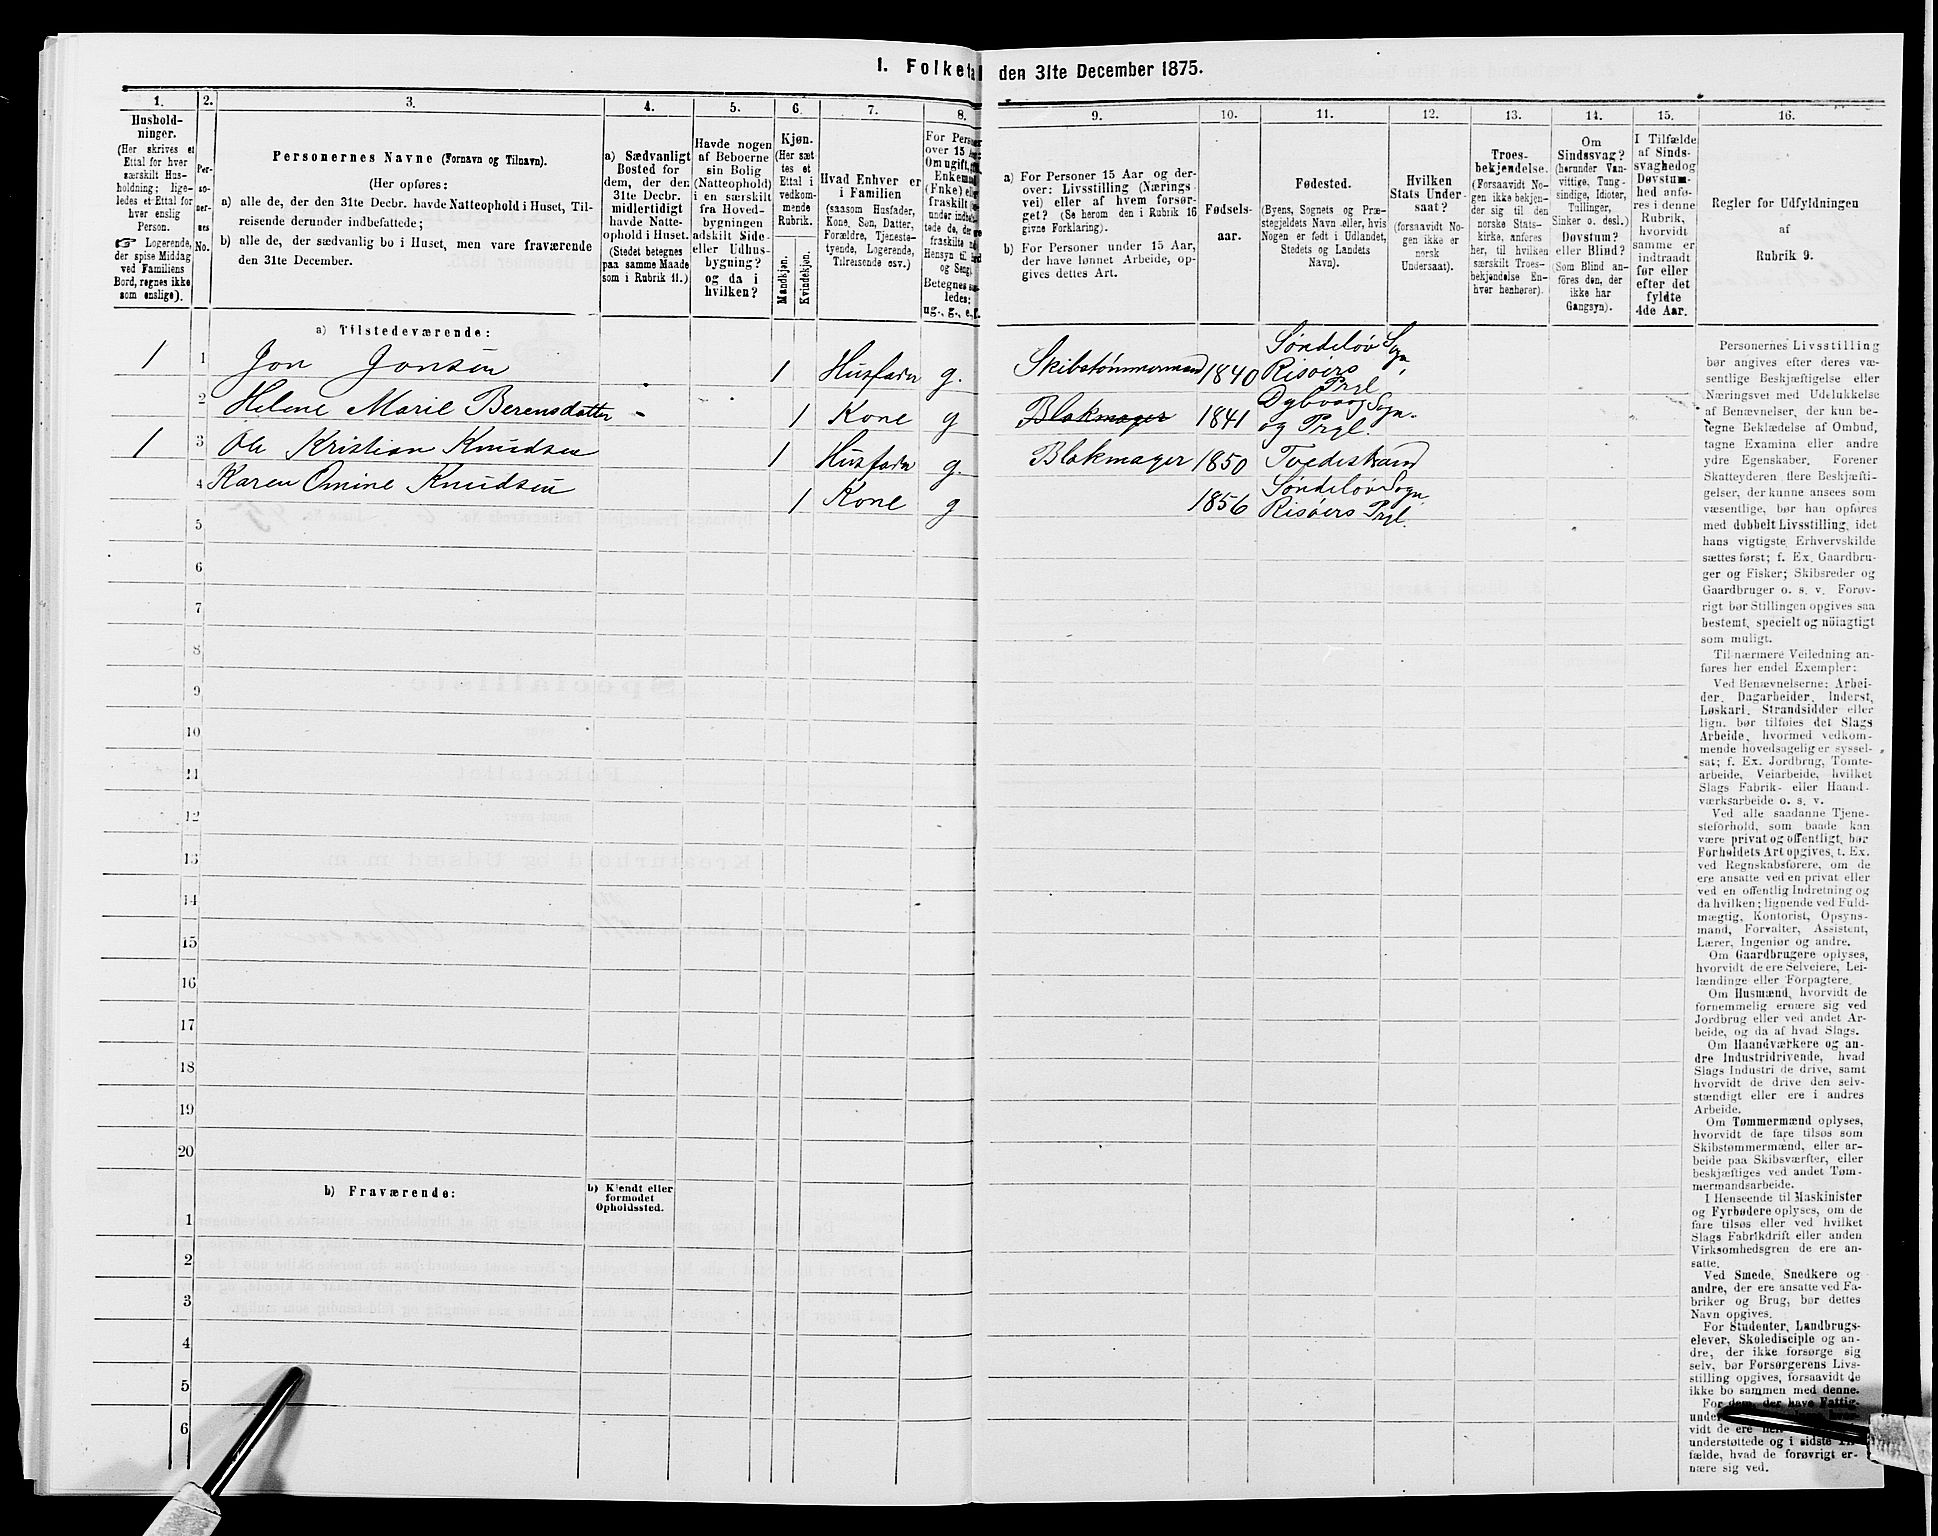 I. Folketal den 31te December 1875.
1. 2. 3. 4. 5. 6. 7. 8. 9. 10. 11. 12. 13. 14. 15. 16.
Hushold-
ninger.
(Her skrives et
Ettal for hver
særskilt Hus-
holdning; lige-
ledes et Ettal for
hver enslig
Person.
☞ Logerende,
der spise Middag
ved Familiens
Bord, regnes ikke
som enslige).
Per-
so-
ner-
nes
No.
Personernes Navne (Fornavn og Tilnavn).
(Her opføres:
a) alle de, der den 31te Decbr. havde Natteophold i Huset, Til-
reisende derunder indbefattede;
b) alle de, der sædvanlig bo i Huset, men vare fraværende
den 31te December.
a) Sædvanligt
Bosted for
dem, der den
31te Decbr.
midlertidigt
havde Natte-
ophold i Huset.
(Stedet betegnes
paa samme Maade
som i Rubrik 11.)
Havde nogen
af Beboerne
sin Bolig
(Natteophold)
i en særskilt
fra Hoved-
bygningen
adskilt Side-
eller Udhus-
bygning?
og da i
hvilken?
Kjøn.
(Her sæt
tes et
Ettal i
vedkom-
mende
Rubrik.
Mandkjøn.
Kvindekjøn.
Hvad Enhver er
i Familien
(saasom Husfader,
Kone, Søn, Datter,
Forældre, Tjeneste-
tyende, Logerende,
Tilreisende osv.)
For Personer
over 15 Aar:
Om ugift, gift,
Enkemand
(Enke) eller
fraskilt
Betegnes saa-
ledes:
ug., g., e., f.
a) For Personer 15 Aar og der-
over: Livsstilling (Nærings-
vei) eller af hvem forsør-
get? (Se herom den i Rubrik 16
givne Forklaring).
b) For Personer under 15 Aar,
der have lønnet Arbeide, op-
gives dettes Art.
Fødsels-
aar.
Fødested.
(Byens, Sognets og Præ-
stegjeldets Navn eller, hvis
Nogen er født i Udlandet,
Stedets og Landets
Navn).
Hvilken
Stats Under-
saat?
(forsaavidt No-
gen ikke er
norsk
Undersaat).
Troes-
bekjendelse.
(Forsaavidt No-
gen ikke bekjen-
der sig til den
norske Stats-
kirke, anføres
her, til hvilken
særskilt Troes-
bekjendelse En-
hver henhører).
Om
Sindssvag?
(herunder Van-
vittige, Tung-
sindige, Idioter,
Tullinger,
Sinker o. desl.)
Døvstum?
eller Blind?
(Som Blind an-
føres den, der
ikke har
Gangsyn).
I Tilfælde
af Sinds-
svaghed og
Døvstum-
hed anfø-
res i denne
Rubrik,
hvorvidt
samme er
indtraadt
før eller
efter det
fyldte
4de Aar.
Regler for Udfyldningen
af
Rubrik 9.
a) Tilstedeværende:
1 1 Jon Jonsen 1 Husfader g. Skibstømmermand 1840 Søndeløv Sogn, Risøers Prgl.
2 Helene Marie Berensdatter - 1 Kone g Blokmager 1841 Dybvaag Sogn og Prgl.
1 3 Ole Kristian Knudsen 1 Husfader g. Blokmager 1850 Tvedestrand
4 Karen Omine Knudsen 1 Kone g 1856 Søndeløv Sogn Risøers Prgl.
5
6
7
8
9
10
11
12
13
14
15
16
17
18
19
20
b) Fraværende:
b) Kjendt eller
formodet
Opholdssted.
1
2
3
4
5
6
Personernes Livsstilling
bør angives efter deres væ-
sentlige Beskjæftigelse eller
Næringsvei med Udelukkelse
af Benævnelser, der kun be-
tegne Beklædelse af Ombud,
tagne Examina eller andre
ydre Egenskaber. Forener
Skatteyderen flere Beskjæfti-
gelser, der kunne ansees som
væsentlige, bør han opføres
med dobbelt Livsstilling, idet
hans vigtigste Erhvervskilde
sættes først; f. Ex. Gaardbru-
ger og Fisker; Skibsreder og
Gaardbruger o. s. v. Forøv-
rigt bør Stillingen opgives saa
bestemt, specielt og nöiagtigt
som muligt.
Til nærmere Veiledning an-
føres her endel Exempler:
Ved Benævnelserne: Arbei-
der, Dagarbeider, Inderst,
Løskarl, Strandsidder eller
lign. bør tilføies det Slags
Arbeide, hvormed vedkom-
mende hovedsagelig er syssel-
sat; f. Ex. Jordbrug, Tomte-
arbeide, Veiarbeide, hvilket
Slags Fabrik- eller Haand-
værksarbeide o. s. v.
Ved alle saadanne Tjene-
steforhold, som baade kan
være privat og offentligt, bør
Forholdets Art opgives, t. Ex.
ved Regnskabsførere, om de
ere ansatte ved en privat eller
ved en offentlig Indretning og
da hvilken; lignende ved Fuld-
mægtig, Kontorist, Opsyns-
mand, Forvalter, Assistent,
Lærer, Ingeniør og andre.
Om Gaardbrugere oplyses,
hvorvidt de ere Selveiere, Lei-
lændinge eller Forpagtere.
Om Husmænd, hvorvidt de
fornemmelig ernære sig ved
Jordbrug eller ved andet Ar-
beide, og da af hvad Slags.
Om Haandværkere og an-
dre Industridrivende, hvad
Slags Industri de drive, samt
hvorvidt de drive den selv-
stændigt eller ere i andres
Arbeide.
Om Tømmermænd oplyses,
hvorvidt de fare tilsøs som
Skibstømmermænd, eller ar-
beide paa Skibsværfter, eller
beskjæftiges ved andet Tøm-
mermandsarbeide.
I Henseende til Maskinister
og Fyrbødere oplyses, om de
fare tilsøs eller ved hvilket
Slags Fabrikdrift eller anden
Virksomhedsgren de ere an-
satte.
Ved Smede, Snedkere og
andre, der ere ansatte ved Fa-
briker og Brug, bør dettes
Navn opgives.
For Studenter, Landbrugs-
elever, Skoledisciple og an-
dre, der ikke forsørge sig
selv, bør Forsørgerens Livs-
stilling opgives, forsaavidt de
ikke bo sammen med denne.
For dem, der have Fattig-
under
vidt de ere
understøttede og i sidste Til-
fælde, hvad de forøvrigt er-
nære sig ved.